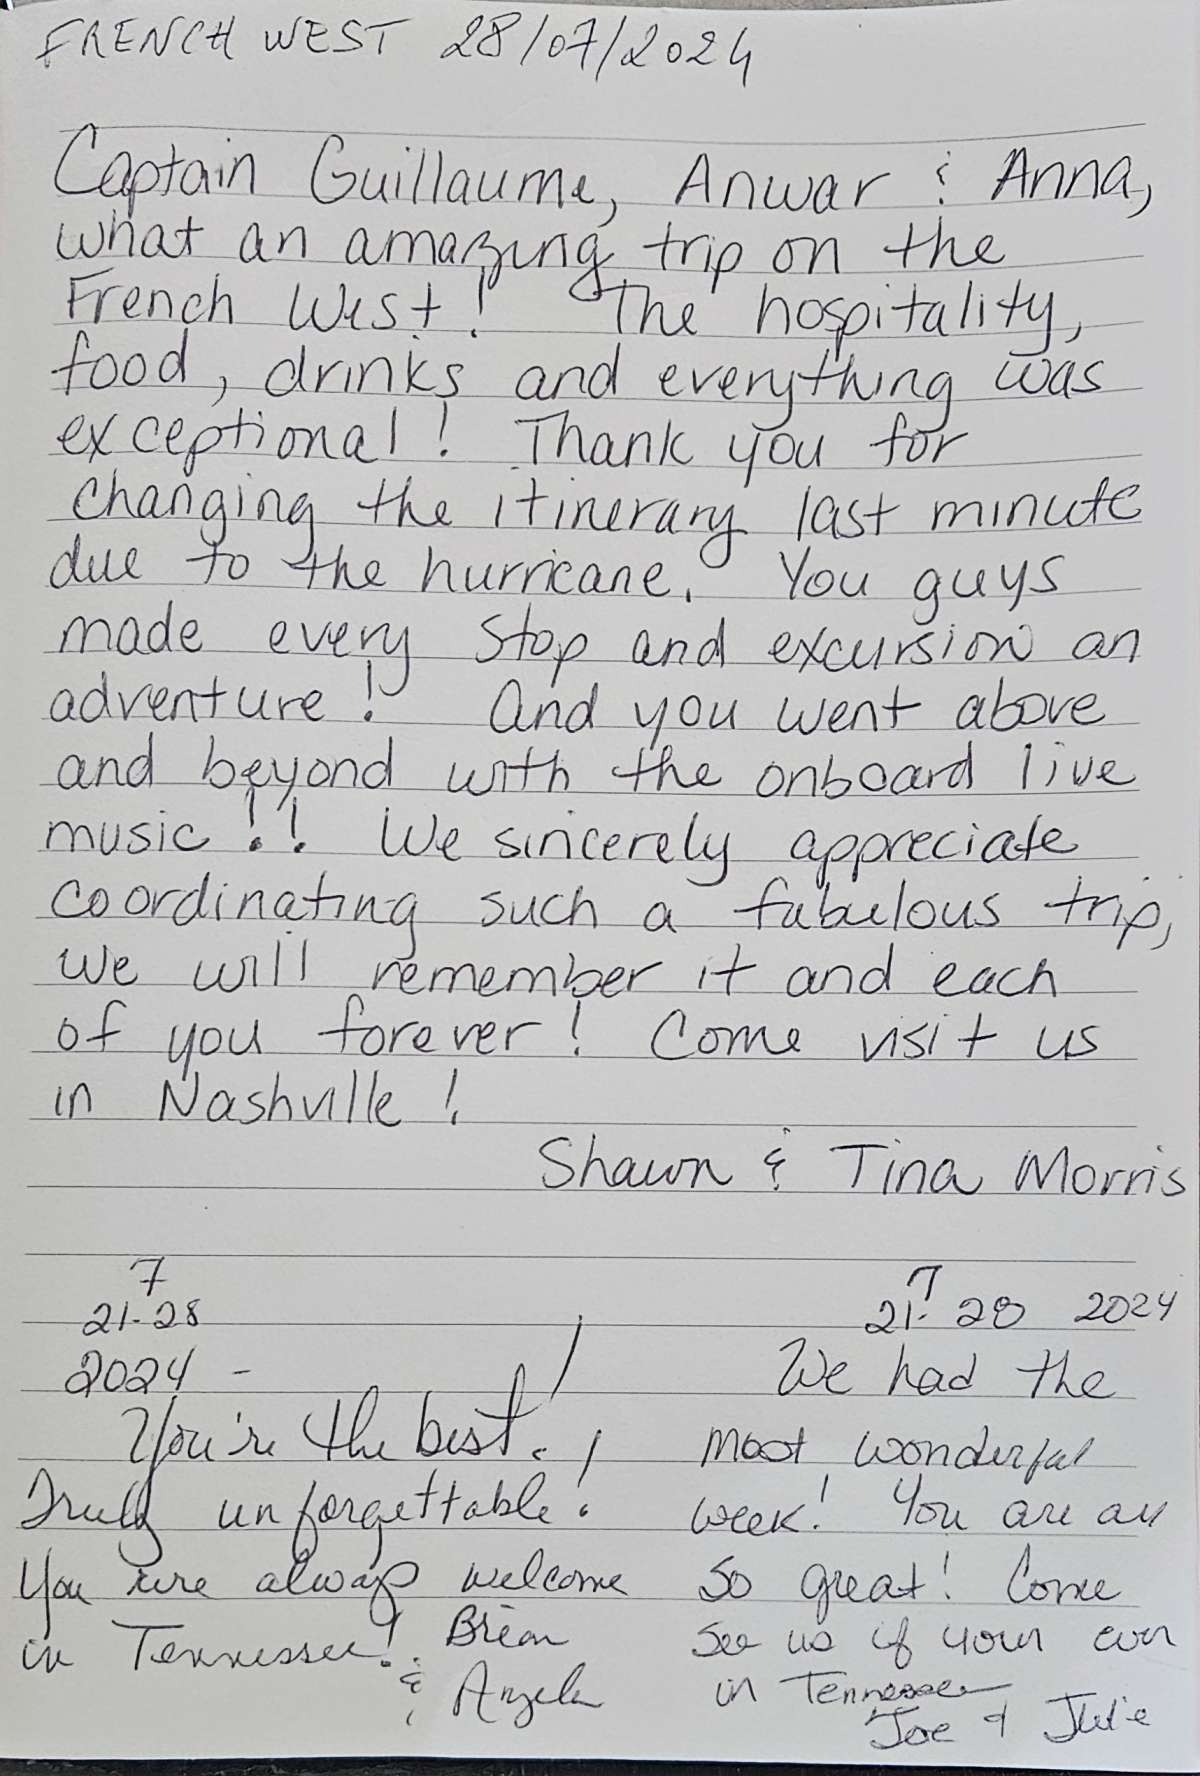 FRENCH WEST 28/07/2024
Captain Guillaume, Anwar & Anna,
what an amazing trip on the
French West! The hospitality,
food, drinks and everything was
exceptional! Thank you for
changing the itinerary last minute
due to the hurricane. You guys
made every stop and excursion an
adventure! And you went above
and beyond with the onboard live
music!! We sincerely appreciate
coordinating such a fabulous trip,
we will remember it and each
of you forever! Come visit us
in Nashville!
Shawn & Tina Morris
7
21-28
2024 -
You're the best.!
Truly unforgettable!
You are always welcome
in Tennessee! Brian
& Angela
7
21-28 2024
We had the
most wonderful
week! You are all
so great! Come
see us if your ever
in Tennessee
Joe & Julie